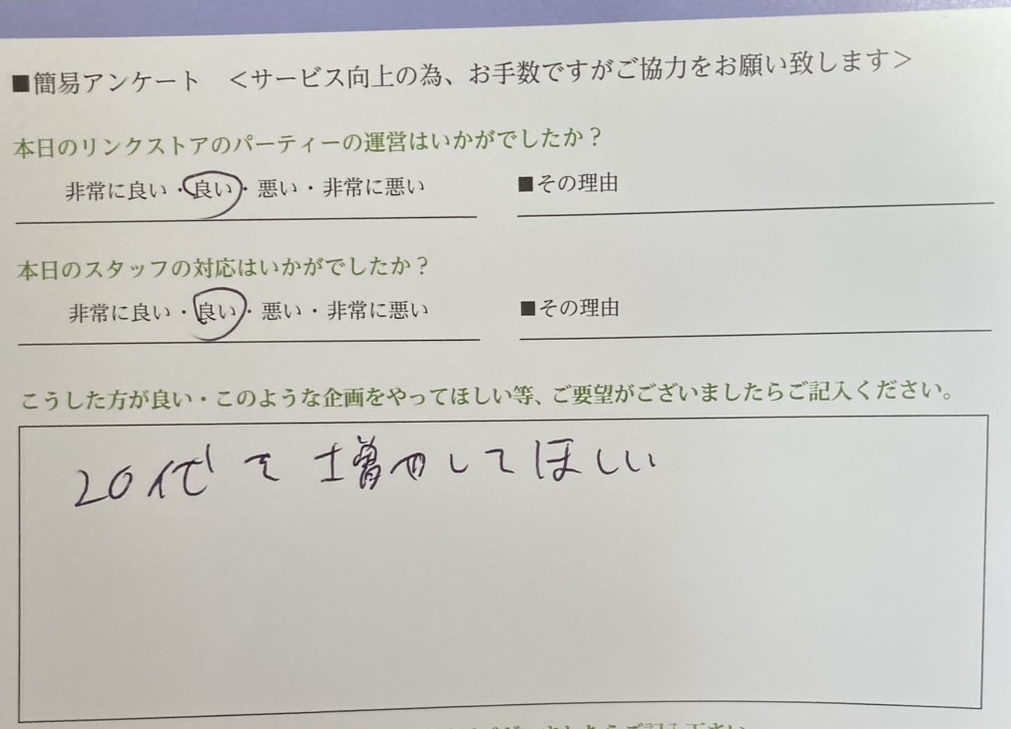 ■簡易アンケート　＜サービス向上の為、お手数ですがご協力をお願い致します＞
本日のリンクストアのパーティーの運営はいかがでしたか？
非常に良い・良い・悪い・非常に悪い　■その理由
本日のスタッフの対応はいかがでしたか？
非常に良い・良い・悪い・非常に悪い　■その理由
こうした方が良い・このような企画をやってほしい等、ご要望がございましたらご記入ください。
20代を増やしてほしい